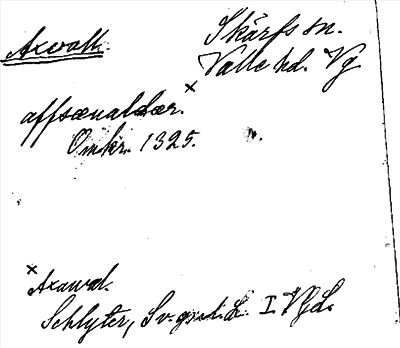 Axvall.
Skärfs sn.
Valle hd. Vg
affsænaldær.x
Omkr. 1325.
x Axawal.
Schlyter, Sv. gml. L. I VgL.